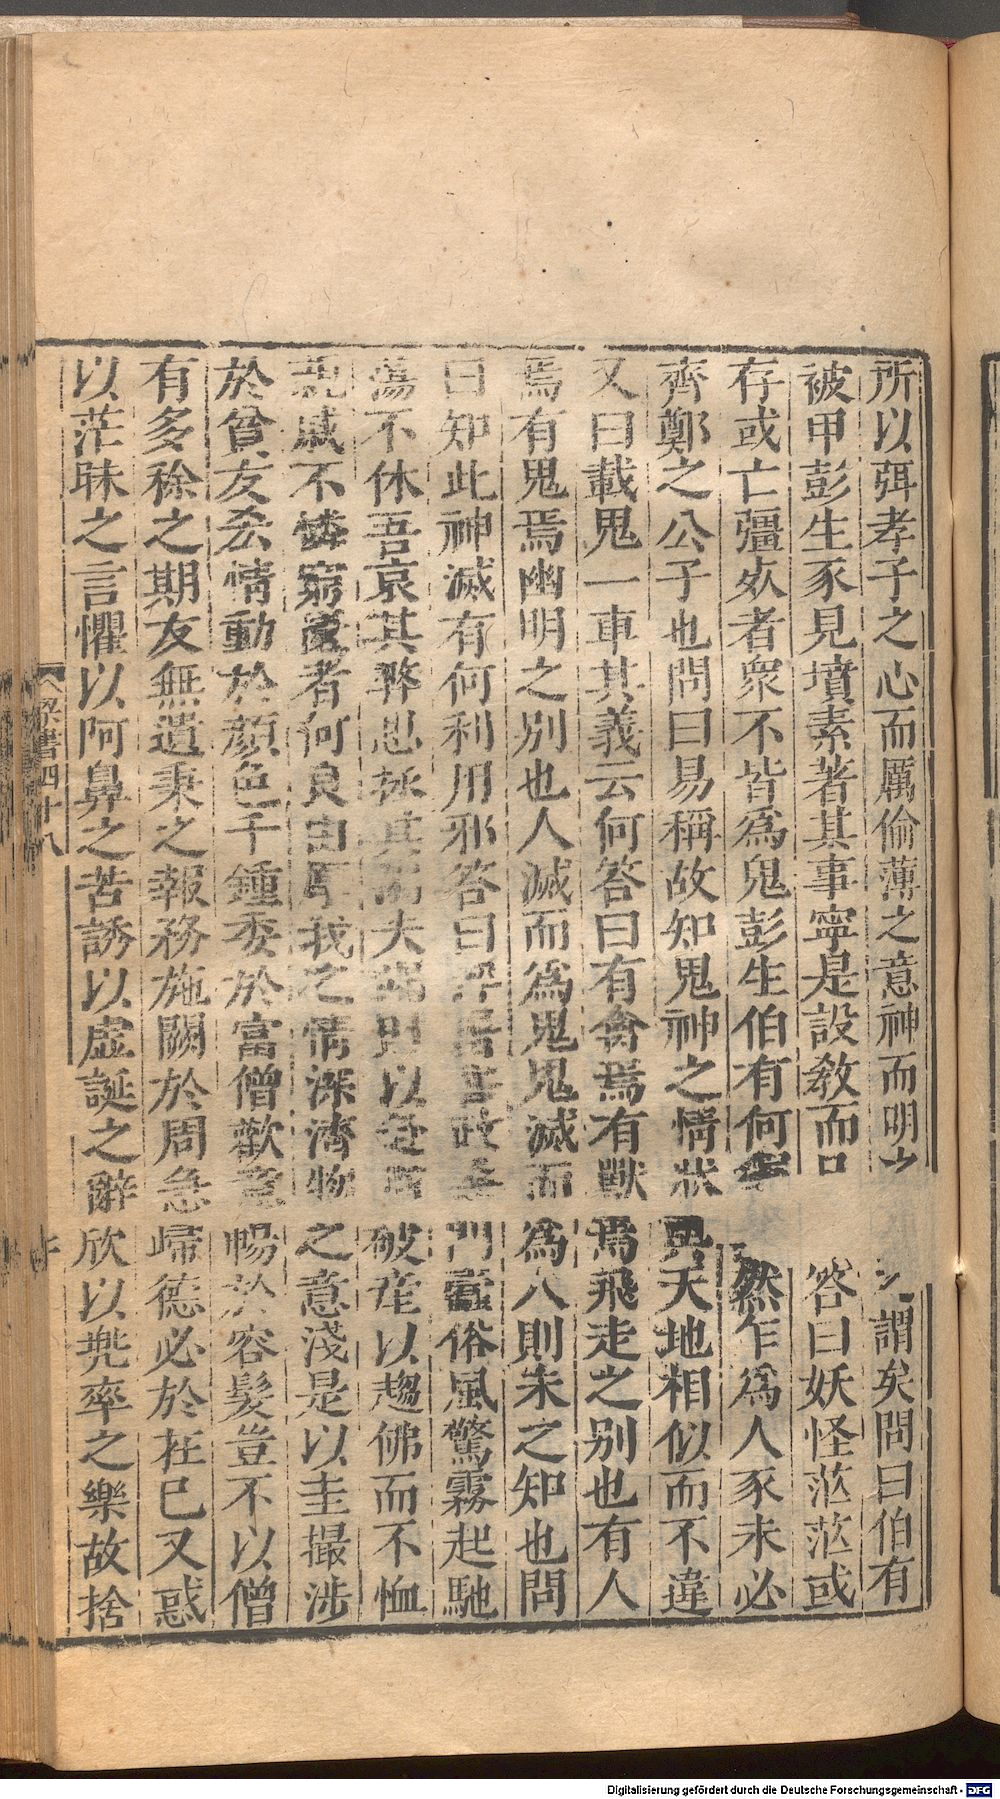 所以弭孝子之心而厲偷薄之意神而明之謂矣問曰伯有
被甲彭生豕見墳素著其事寧是設教而答曰妖怪茫茫或
存或亡彊歿者衆不皆爲鬼彭生伯有何然乍爲人豕未必
齊鄭之公子也問曰易稱故知鬼神之情狀與天地相似而不違
又曰載鬼一車其義云何答曰有禽焉有獸焉飛走之别也有人
焉有鬼焉幽明之别也人滅而爲鬼鬼滅而爲人則未之知也問
曰知此神滅有何利用邪答曰浮屠害政桑門蠹俗風驚霧起馳
蕩不休吾哀其弊思拯其溺夫竭財以赴僧破産以趨佛而不恤
親戚不憐窮匱者何良由厚我之情深濟物之意淺是以圭撮涉
於貧友吝情動於顔色千鍾委於富僧歡意暢於容髮豈不以僧
有多稌之期友無遺秉之報務施闕於周急歸德必於在已又惑
以茫昧之言懼以阿鼻之苦誘以虚誕之辭欣以兠率之樂故捨
梁書四十八
Digitalisierung gefördert durch die Deutsche Forschungsgemeinschaft - DFG